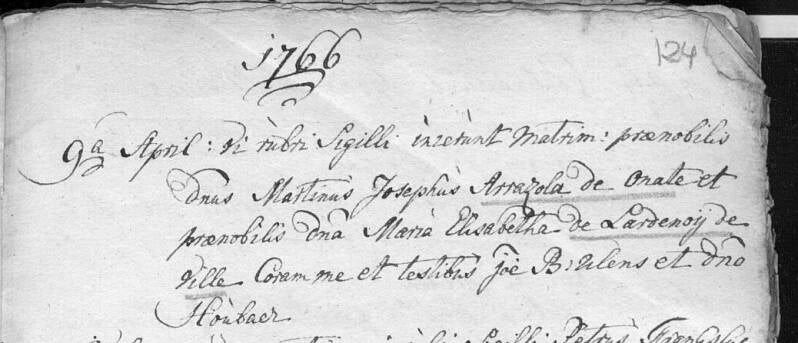 1766
124
9a April: vi rubri Sigilli inierunt Matrim: prænobilis
dnus Martinus Josephus Arrazola de Onate et
prænobilis dna Maria Elisabetha de Lardenoij de
Ville Coram me et testibus joe Brulens et dno
Houbaer
Sigilli Petrus Franciscus